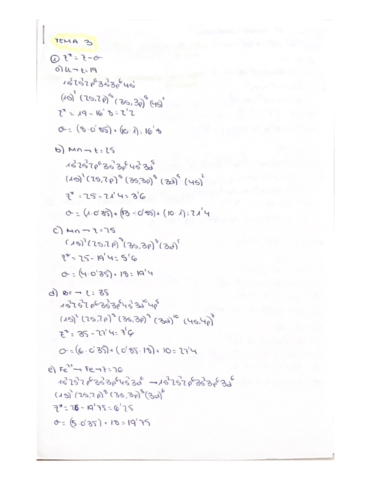 TEMA 3
① Z* = Z - σ
a) K → Z = 19
1s² 2s² 2p⁶ 3s² 3p⁶ 4s¹
(1s)² (2s, 2p)⁸ (3s, 3p)⁸ (4s)¹
Z* = 19 - 16'8 = 2'2
σ = (8·0'85) + (10·1) = 16'8
b) Mn → Z = 25
1s² 2s² 2p⁶ 3s² 3p⁶ 4s² 3d⁵
(1s)² (2s, 2p)⁸ (3s, 3p)⁸ (3d)⁵ (4s)²
Z* = 25 - 21'4 = 3'6
σ = (1·0'35) + (13·0'85) + (10·1) = 21'4
c) Mn → Z = 25
(1s)² (2s, 2p)⁸ (3s, 3p)⁸ (3d)⁵
Z* = 25 - 19'4 = 5'6
σ = (4·0'35) + 18 = 19'4
d) Br → Z = 35
1s² 2s² 2p⁶ 3s² 3p⁶ 4s² 3d¹⁰ 4p⁵
(1s)² (2s, 2p)⁸ (3s, 3p)⁸ (3d)¹⁰ (4s, 4p)⁷
Z* = 35 - 27'4 = 7'6
σ = (6·0'35) + (0'85·18) + 10 = 27'4
e) Fe²⁺ → Fe → Z = 26
1s² 2s² 2p⁶ 3s² 3p⁶ 4s² 3d⁶ → 1s² 2s² 2p⁶ 3s² 3p⁶ 3d⁶
(1s)² (2s, 2p)⁸ (3s, 3p)⁸ (3d)⁶
Z* = 26 - 19'75 = 6'25
σ = (5·0'35) + 18 = 19'75